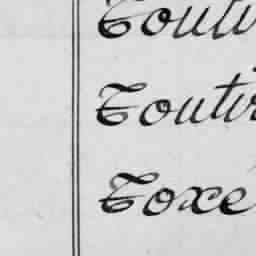 Toutv
Toutv
Toxe